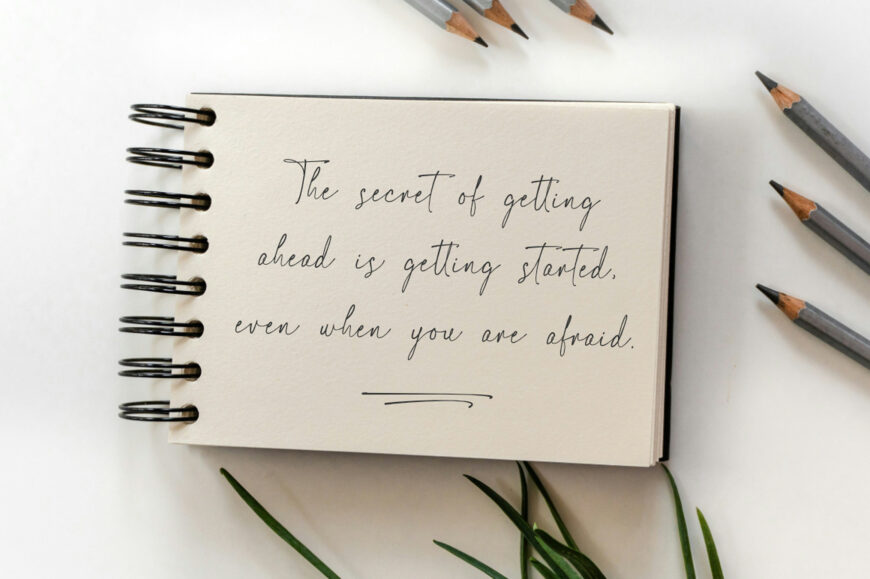 The secret of getting
ahead is getting started,
even when you are afraid.